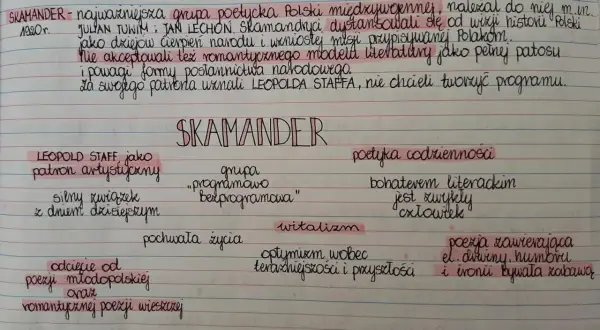 SKAMANDER - najważniejsza grupa poetycka Polski międzywojennej, należał do niej m.in.
1920r. JULIAN TUWIM i JAN LECHOŃ. Skamandryci dystansowali się od wizji historii Polski
jako dziejów cierpień narodu i wzniosłej misji przypisywanej Polakom.
Nie akceptowali też romantycznego modelu literatury jako pełnej patosu
i powagi formy posłannictwa narodowego.
Za swojego patrona uznali LEOPOLDA STAFFA, nie chcieli tworzyć programu.
SKAMANDER
LEOPOLD STAFF jako
patron artystyczny
grupa
„programowo
bezprogramowa"
poetyka codzienności
silny związek
z dniem dzisiejszym
bohaterem literackim
jest zwykły
człowiek
witalizm
pochwała życia
optymizm wobec
teraźniejszości i przyszłości
poezja zawierająca
el. drwiny, humoru
i ironii bywała zabawą
odcięcie od
poezji młodopolskiej
oraz
romantycznej poezji wieszczej